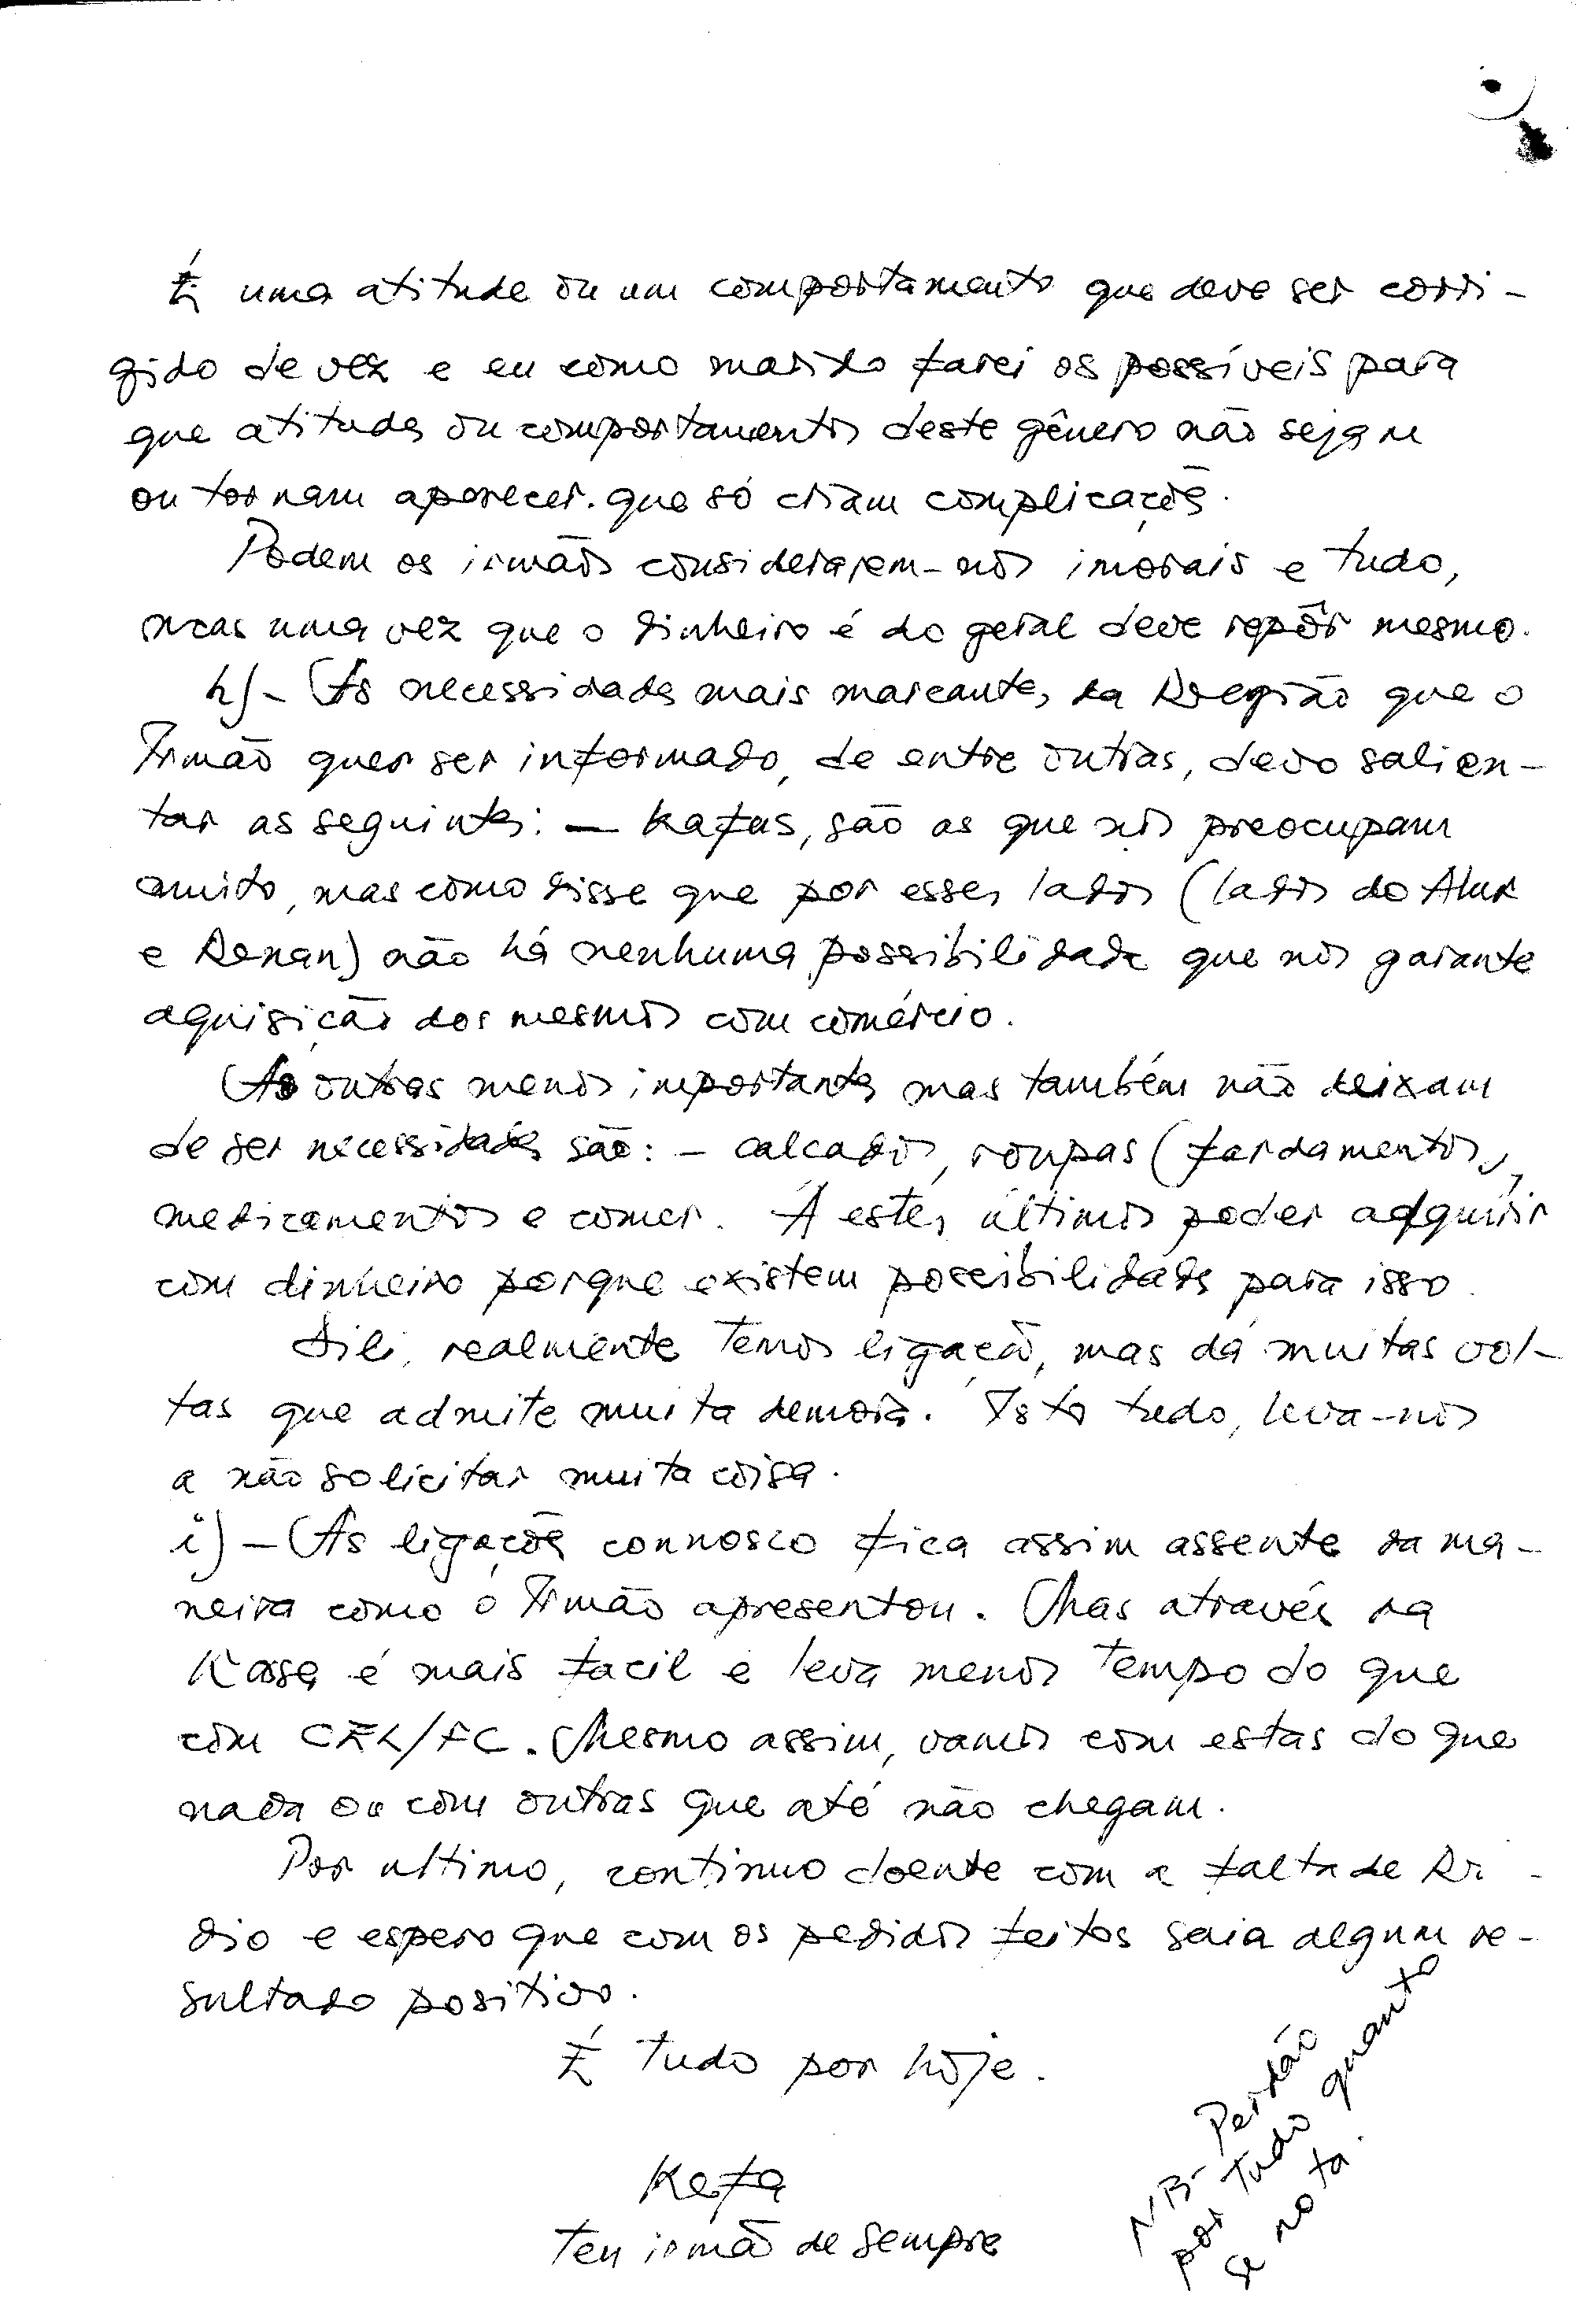 É uma atitude ou um comportamento que deve ser corri-
gido de vez e eu como marido farei os possíveis para
que atitudes ou comportamentos deste gênero não sejam
ou tornam aparecer. que só criam complicações.
Podem os irmãos considerarem-nos imorais e tudo,
mas uma vez que o dinheiro é do geral deve repôr mesmo.
h) - As necessidades mais marcantes da Região que o
Irmão quer ser informado, de entre outras, devo salien-
tar as seguintes: - Kafus, são as que nos preocupam
muito, mas como disse que por esses lados (lados do Aluk
e Renan) não há nenhuma possibilidade que nos garante
aquisição dos mesmos com comércio.
As outras menos importantes mas também não deixam
de ser necessidades são: - calcados, roupas (fardamentos),
medicamentos e comer. A estes últimos poder adquirir
com dinheiro porque existem possibilidades para isso.
Dili, realmente temos ligação, mas dá muitas vol-
tas que admite muita demora. Isto tudo, leva-nos
a não solicitar muita coisa.
i) - As ligações connosco fica assim assente da ma-
neira como o Irmão apresentou. Mas através da
é mais facil e leva menos tempo do que
com CEL/FC. Mesmo assim, vamos com estas do que
nada ou com outras que até não chegam.
Por ultimo, continuo doente com a falta de Rá-
dio e espero que com os pedidos feitos saia algum re-
sultado positivo.
É tudo por hoje.
Kefa
Teu irmão de sempre
NB- Perdão
por tudo quanto
se nota.